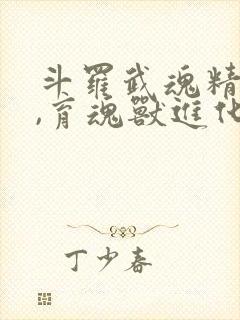 斗羅武魂精
,育魂獸進化
丁少春